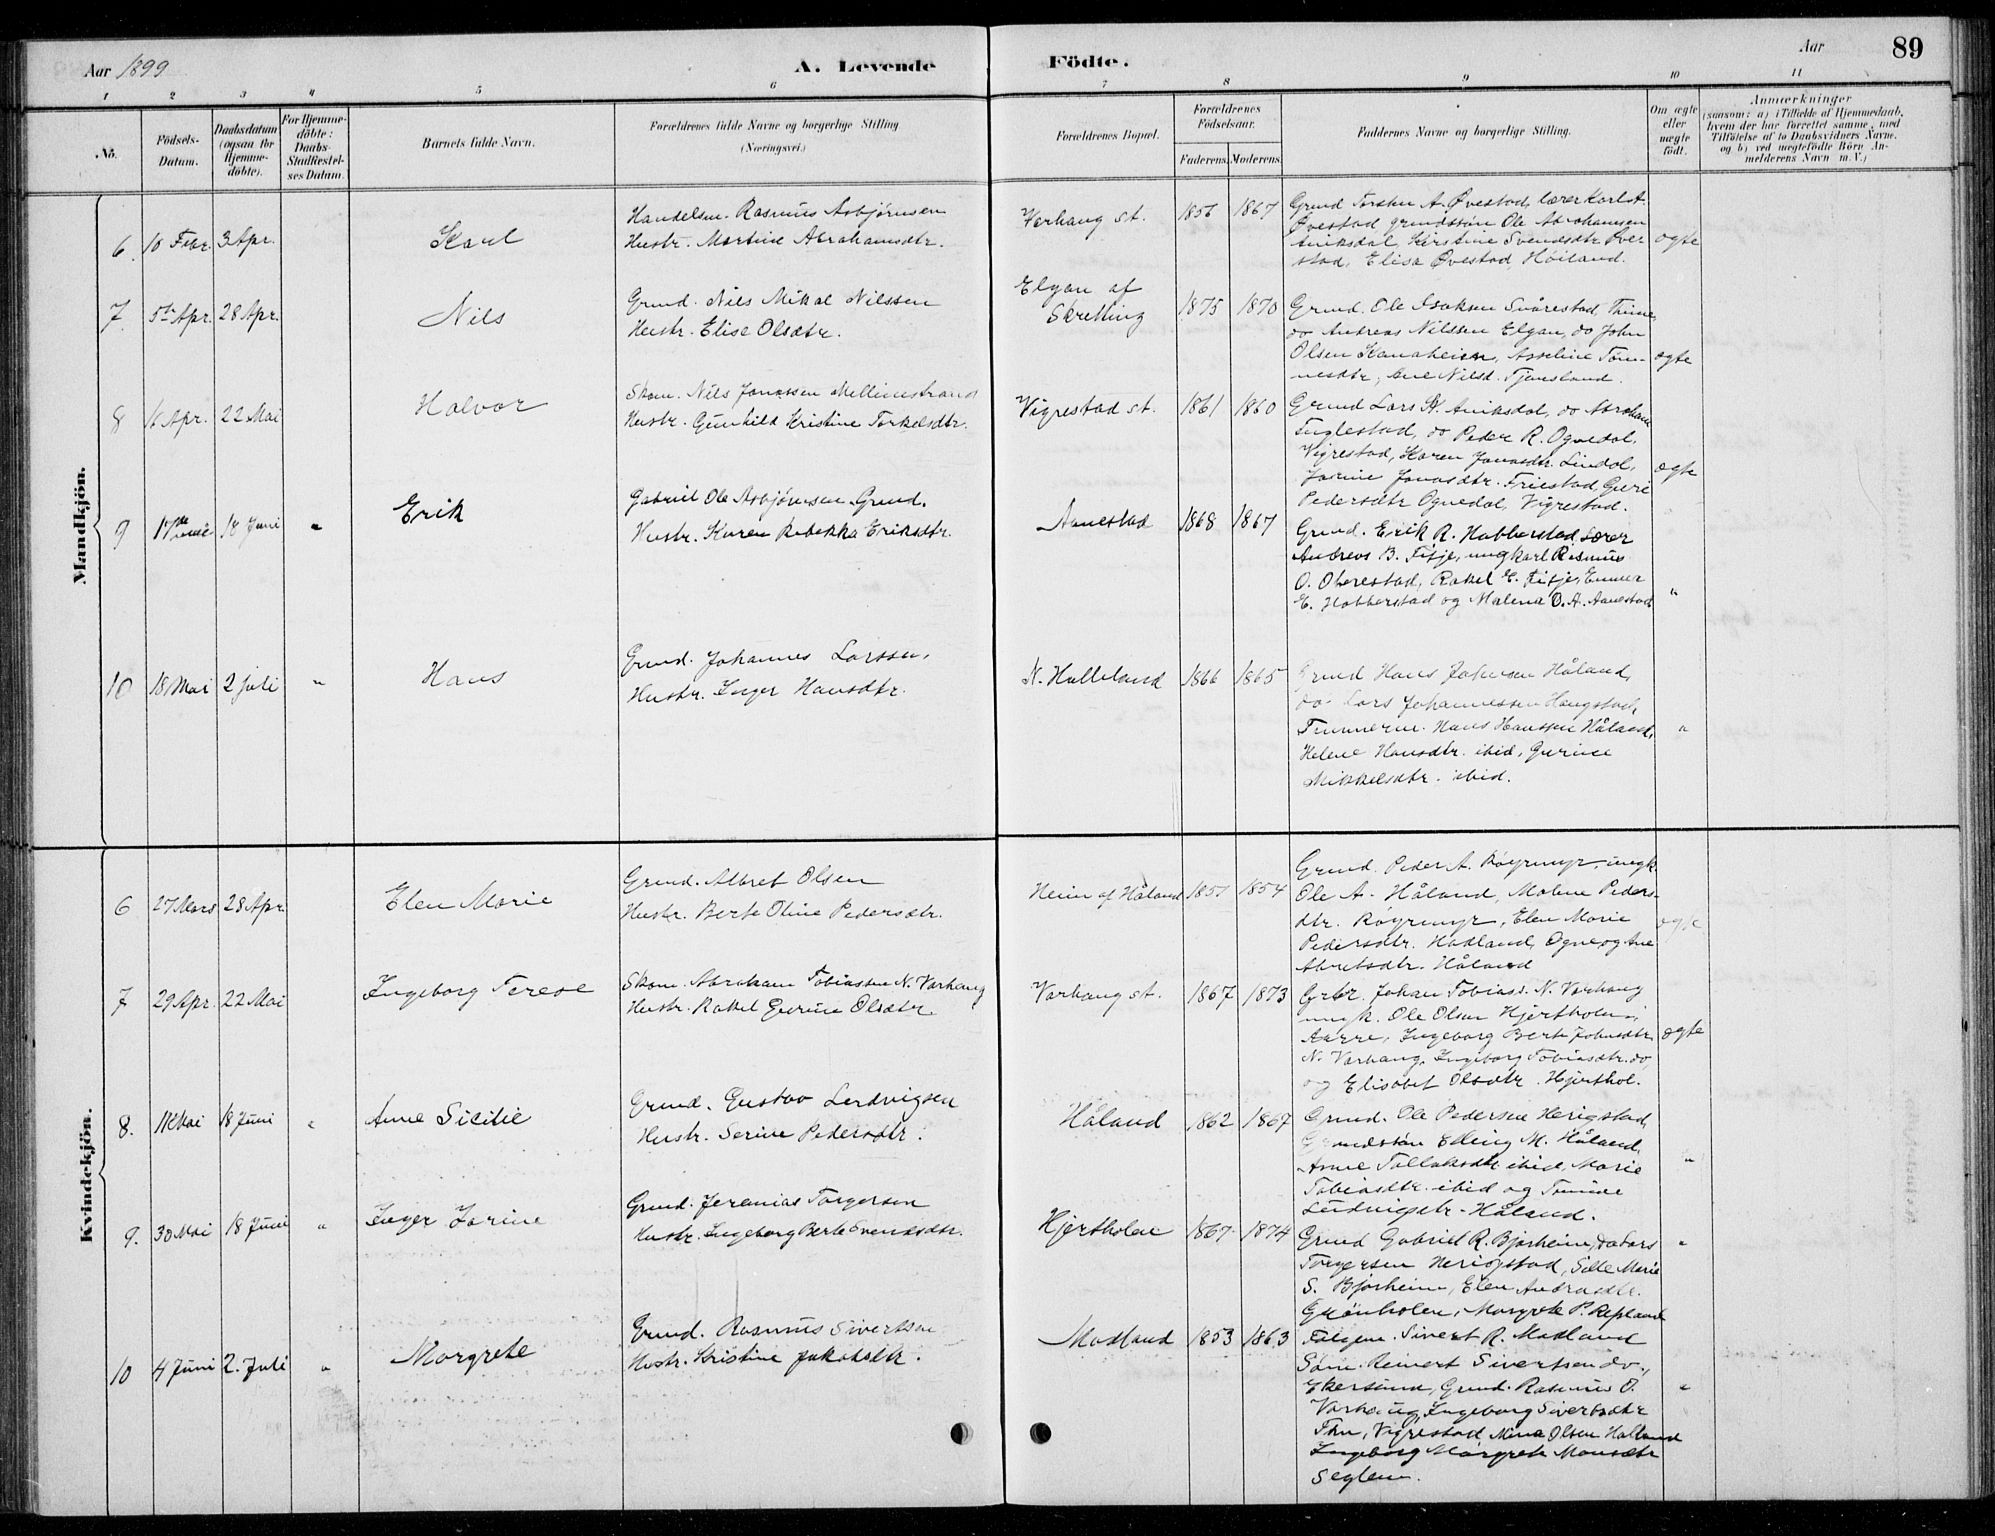 Aar 1899
A. Levende
Födte.
Aar
89
1 2 3 4 5 6 7 8 9 10 11
No.
Födsels-
Datum.
Daabsdatum
(ogsaa for
Hjemme-
döbte).
For Hjemme-
döbte:
Daabs-
Stadfæstel-
ses Datum.
Barnets fulde Navn.
Forældrenes fulde Navne og borgerlige Stilling
(Næringsvei.)
Forældrenes Bopæl.
Forældrenes
Födselsaar.
Faderens.
Moderens.
Faddernes Navne og borgerlige Stilling.
Om ægte
eller
uægte
født.
Anmærkninger
(saasom: a) i Tilfælde af Hjemmedaab,
hvem der har forrettet samme, med
Tilföielse af to Daabsvidners Navne,
og b) ved uægtefödte Börn An-
melderens Navn m. V.)
Mandkjön.
6. 10 Febr. 3 Apr.
Karl
Handelsm. Rasmus Asbjørnsen
Hustr. Martine Abrahamsdtr.
Varhaug st.
1856 1867
Grund Torsten A. Øvestad, lærer Karl A.
Øvestad grundssøn Ole Abrahamsen
Aniksdal, Kirstine Svendsdtr Øver
stad, Elisa Øvestad, Høiland.
ægte
7. 5te Apr. 28 Apr.
Nils
Grund. Nils Mikal Nilssen
Hustr. Elise Olsdtr.
Elgan af
Skretting
1875 1870
Grund. Ole Isaksen Svårestad, Thime,
do Andreas Nilssen Elgan, do John
Olsen Kanaheien, Asseline Tøn-
nesdtr, Ane Nilsd. Tjensland.
ægte
8 16 Apr. 22 Mai
Halvor
Skom. Nils Jonassen Mellimstrand
Hustr. Gunhild Kristine Torkelsdtr.
Vigrestad st.
1861 1860
Grund Lars H. Aniksdal, do Abraham
Fuglestad, do Peder R. Ognedal,
Vigrestad, Karen Jonasdtr. Lindal,
Jasine Jonasdtr. Friestad, Guri
Pedersdtr Ognedal, Vigrestad.
ægte
9 18 Juni "
Erik
Gabriel Ole Asbjørnsen Grund.
Hustr. Karen Rebekka Eriksdtr.
Aanestad
1868 1867
Grund. Erik R. Hobberstad, Lærer
Andreas B. Fitje, ungkarl Rasmus
O. Oberestad, Rakel E. Fitje, Emma
E. Hobberstad og Malena O. A. Aanestad
"
10 18 Mai 2 Juli "
Hans
Grund. Johannes Larssen.
Hustr. Inger Hansdtr.
N. Holleland
1866 1865
Grund Hans Håland,
do Lars Johannessen Haugstad,
Tømmerm. Hans Hanssen Håland,
Helene Hansdtr. ibid, Gurine
Mikkelsdtr. ibid.
"
Kvindekjön.
6 27 Mars 28 Apr.
Elen Marie
Grund. Albret Olsen
Hustr. Berte Oline Pedersdtr.
Heim af Håland
1851 1854
Grund. Peder A. Røyrmyr, ungk.
Ole A. Håland, Malene Peders-
dtr. Røyrmyr, Elen Marie
Pedersdtr. Hadland, Ogne og Ane
Abretsdtr. Håland
ægte
7 29 Apr. 22 Mai
Ingeborg Terese
Skom. Abraham Tobiassen N. Varhaug
Hustr. Rakel Gurine Olsdtr.
Varhaug st.
1867 1873
Grbr. Johan Tobiass. N. Varhaug
ungk. Ole Olsen Hjertholen,
Aarre, Ingeborg Berte Johnsdtr.
N. Varhaug, Ingeborg Tobiasdtr. do
og Elisabet Olsdtr. Hjerthol.
ægte
8. 11 Mai 18 Juni "
Anne Sicilie
Grund. Gustav Ludvigsen
Hustr. Serine Pedersdtr.
Håland
1862 1867
Grund. Ole Pedersen Herigstad,
Grundssøn Elling M. Håland,
Anne Tollaksdtr. ibid, Marie
Tobiasdtr. ibid og Tomine
Ludvigsdtr. Håland.
"
9. 30 Mai 18 Juni "
Inger Jorine
Grund. Jeremias Torgersen
Hustr. Ingeborg Berte Svendsdtr.
Hjertholen
1867 1874
Grund Gabriel R. Bjorheim, do Lars
Torgersen Herigstad, Sille Marie
S. Bjorheim, Elen Andreasdtr.
Grönholen, Margrete P. Refsland
"
10 4 Juni 2. Juli "
Margrete
Grund. Rasmus Sivertsen
Hustr. Kristine Jakobsdtr.
Madland
1853 1863
Følgem. Sivert R. Madland
Søm. Reinert Sivertsen do,
Ekersund, Grund. Rasmus O.
Varhaug, Ingeborg Sivertsdtr
Thu, Vigrestad Mina Olsen Holland
Ingeborg Margrete Monsdtr
Seglem.
"